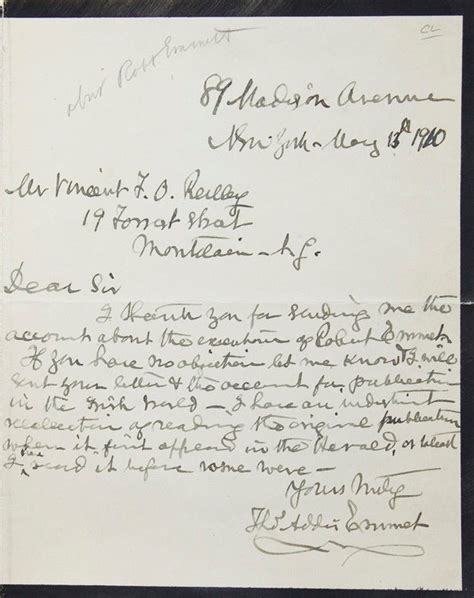 CL
abut Robt Emmett
89 Madison Avenue
New York - May 13th 1910
Mr Vincent F. O. Reilley
19 Forrest Street
Montclair - N.J.
Dear Sir
I thank you for sending me the
account about the execution of Robert Emmet.
If you have no objection let me know & I will
sent your letter & the account for publication
in the Irish World - I have an indistinct
recollection of reading the original publication
when it first appeared in the Herald, or at least
I read it before some were -
Yours truly
Thos Addis Emmet